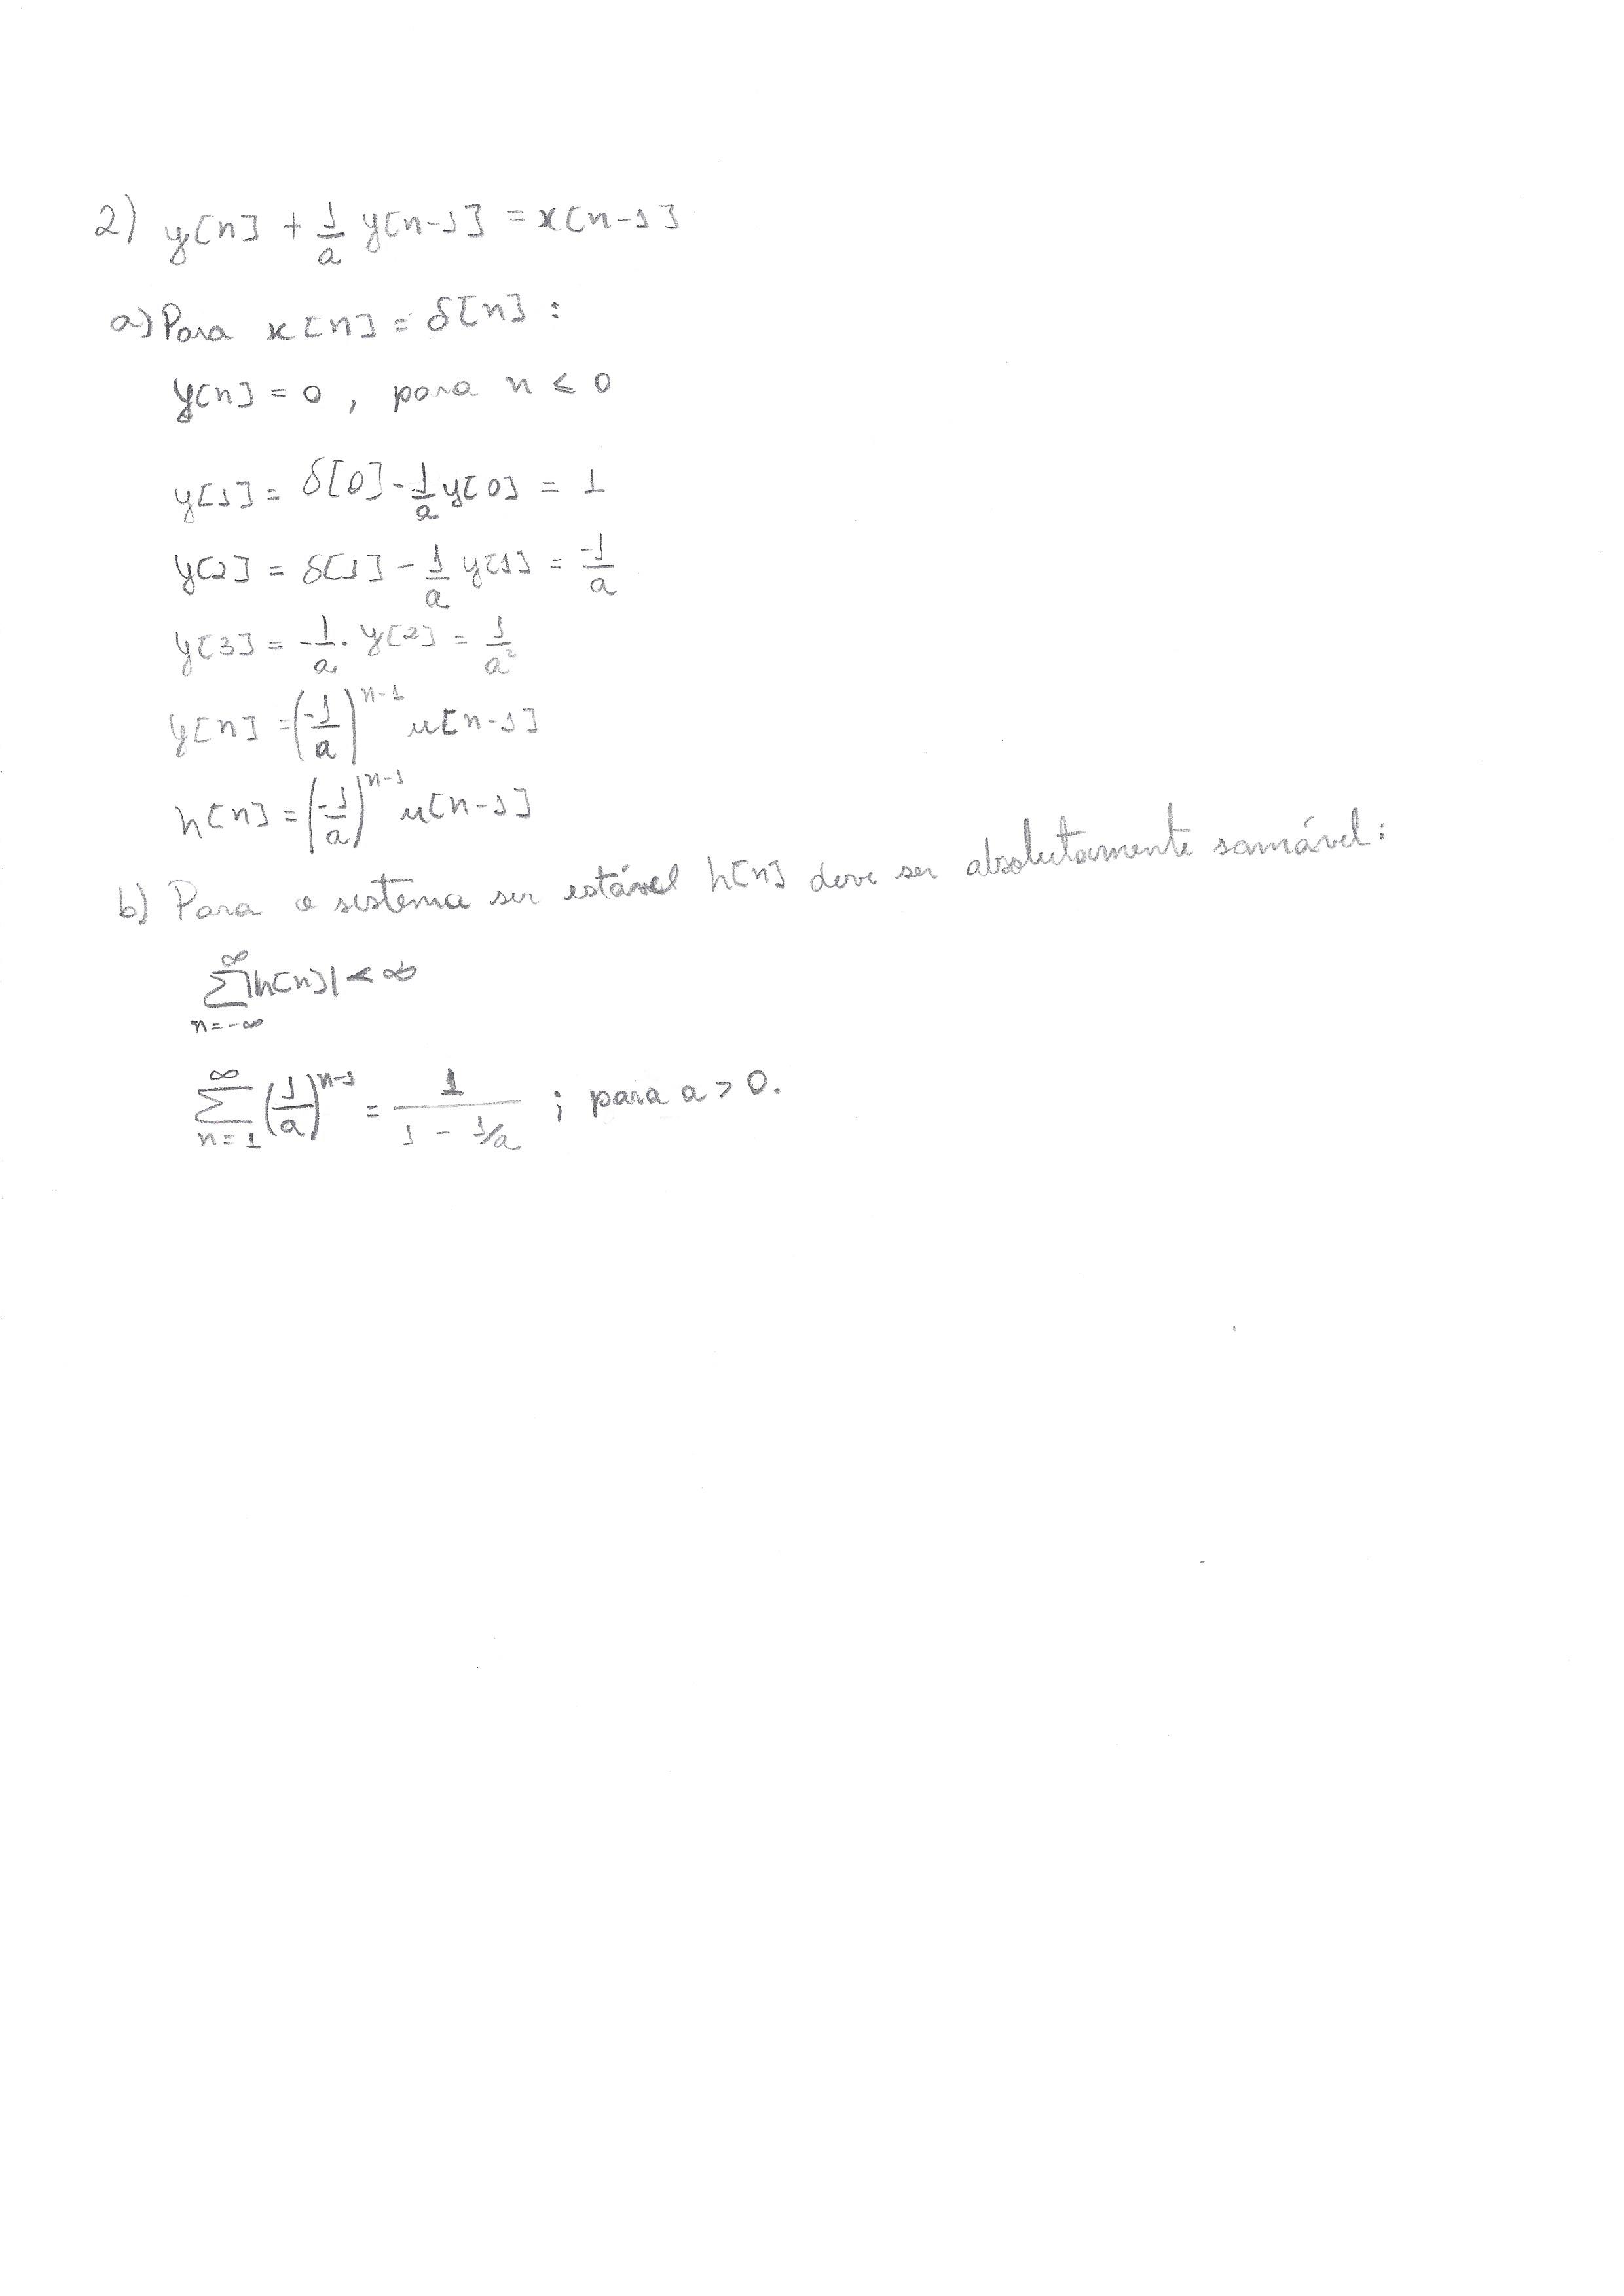 2) y[n] + 1/a y[n-1] = x[n-1]
a) Para x[n] = δ[n] :
y[n] = 0 , para n ≤ 0
y[1] = δ[0] - 1/a y[0] = 1
y[2] = δ[1] - 1/a y[1] = -1/a
y[3] = -1/a · y[2] = 1/a²
y[n] = (-1/a)^(n-1) u[n-1]
h[n] = (-1/a)^(n-1) u[n-1]
b) Para o sistema ser estável h[n] deve ser absolutamente somável :
∑_{n=-∞}^{∞} |h[n]| < ∞
∑_{n=1}^{∞} (1/a)^(n-1) = 1/(1 - 1/a) ; para a > 0.